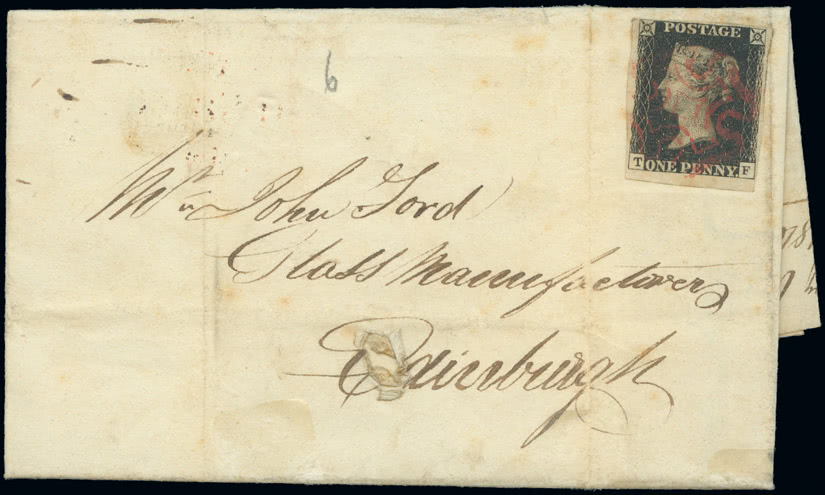 POSTAGE
T ONE PENNY F
6
Mr John Ford
Glass Manufacturer
Edinburgh